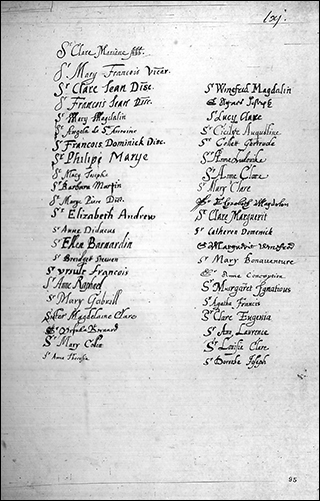 lxj.
Sr Clare Mariane Abb.
Sr Mary Francois Vicar.
Sr Clare Jean Disc.
Sr Francois Jean Disc.
Sr Mary Magdalin
Sr Angela de St
Sr Francois Dominick Disc.
Sr Philipe Marye
Sr Mary Joseph
Sr Barbara Martin
Sr Marye Disc.
Sr Elizabeth Andrew
Sr Anne Didacus
Sr Ellen Barnardin
Sr Bridget
Sr Ursule Francois
Sr Anne Raphael
Sr Mary Gabriell
Sister Magdelaine Clare
Sr Ursula Bernard
Sr Mary Collet
Sr Anne Theresia
Sr Winefred Magdalin
Sr Agnes Joseph
Sr Lucy Clare
Sr Cicelye Augustine
Sr Collet Gertrude
Sr Anne
Sr Anne Clare
Sr Mary Clare
Sr Magdalen
Sr Clare Margerit
Sr Catheren Domenick
Sr Margarite Winefred
Sr Mary Bonaventure
Sr Anne Conception
Sr Margaret Ignatious
Sr Agatha Francis
Sr Clare Eugenia
Sr Ann Laurence
Sr Clare
Sr Dorothe Joseph
95